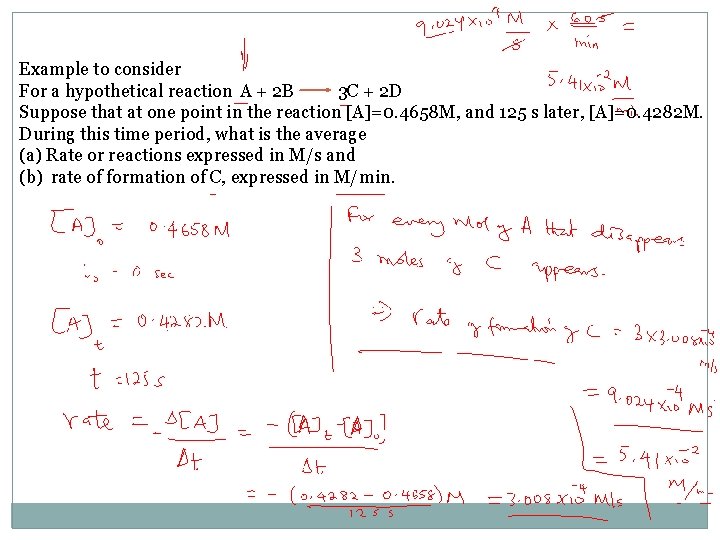 9.024x10⁻⁴ M/s x 60s/min =
5.41x10⁻² M
Example to consider
For a hypothetical reaction A + 2B ⟶ 3C + 2D
Suppose that at one point in the reaction [A]=0.4658M, and 125 s later, [A]=0.4282M.
During this time period, what is the average
(a) Rate or reactions expressed in M/s and
(b) rate of formation of C, expressed in M/min.
[A]₀ = 0.4658M
= 0 sec
[A]t = 0.4282M
t = 125 s
rate = -Δ[A]/Δt = -([A]t - [A]₀)/Δt
= -(0.4282 - 0.4658)M/125s = 3.008x10⁻⁴ M/s
For every mol of A that disappears
3 moles of C appears.
⇒ rate of formation of C = 3x3.008x10⁻⁴ M/s
= 9.024x10⁻⁴ M/s
= 5.41x10⁻² M/